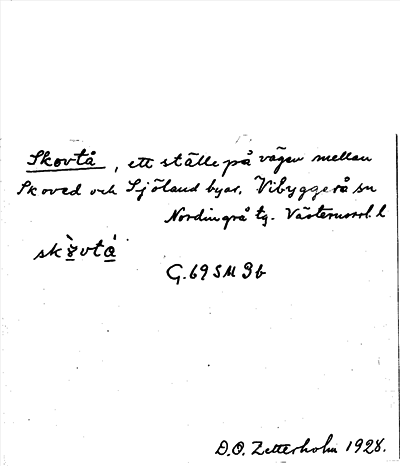 Skovtå, ett ställe på vägen mellan
Skoved och Sjöland byar. Vibyggerå sn
Nordingrå tg. Västernorrl. l
G. 69 S M 9b
D.O. Zetterholm 1928.